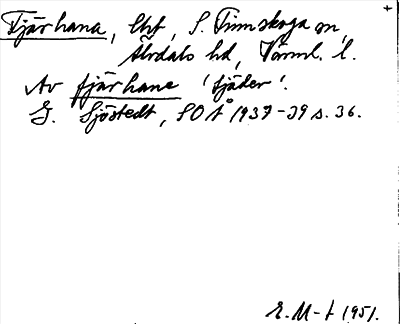 Tjärhana, Ehf, S. Finnskoga sn,
Älvdals hd, Värml. l.
Av tjärhane 'tjäder'.
G. Sjöstedt, SOÅ 1937-39 s. 36.
E. M-t 1951.